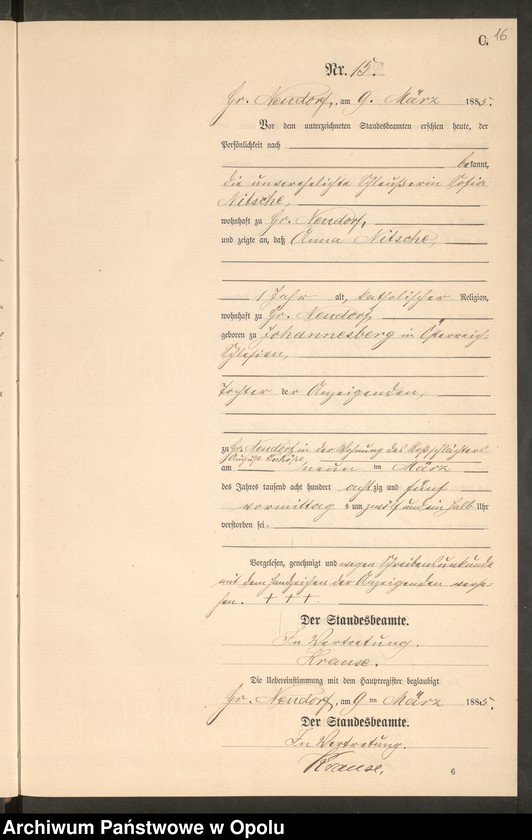 C. 16
Nr. 15.
Gr. Neudorf, am 9. März 1885.
Vor dem unterzeichneten Standesbeamten erschien heute, der
Persönlichkeit nach
bekannt,
die unverehelichte Schleußerin Sofia
Nitsche,
wohnhaft zu Gr. Neudorf,
und zeigte an, daß Anna Nitsche,
1 Jahr alt, katholischer Religion,
wohnhaft zu Gr. Neudorf,
geboren zu Johannesberg in Österreich
Schlesien,
Tochter der Anzeigenden,
zu Gr. Neudorf in der Wohnung des
August
am neun im März
des Jahres tausend acht hundert achtzig und fünf
vormittags um zwölf und ein halb Uhr
verstorben sei.
Vorgelesen, genehmigt und wegen Schreibensunkunde
mit dem Handzeichen der Anzeigenden verse-
hen. + + +
Der Standesbeamte.
In Vertretung.
Krause.
Die Uebereinstimmung mit dem Hauptregister beglaubigt
Gr. Neudorf, am 9 ten März 1885.
Der Standesbeamte.
In Vertretung.
Krause.
6
Archiwum Państwowe w Opolu